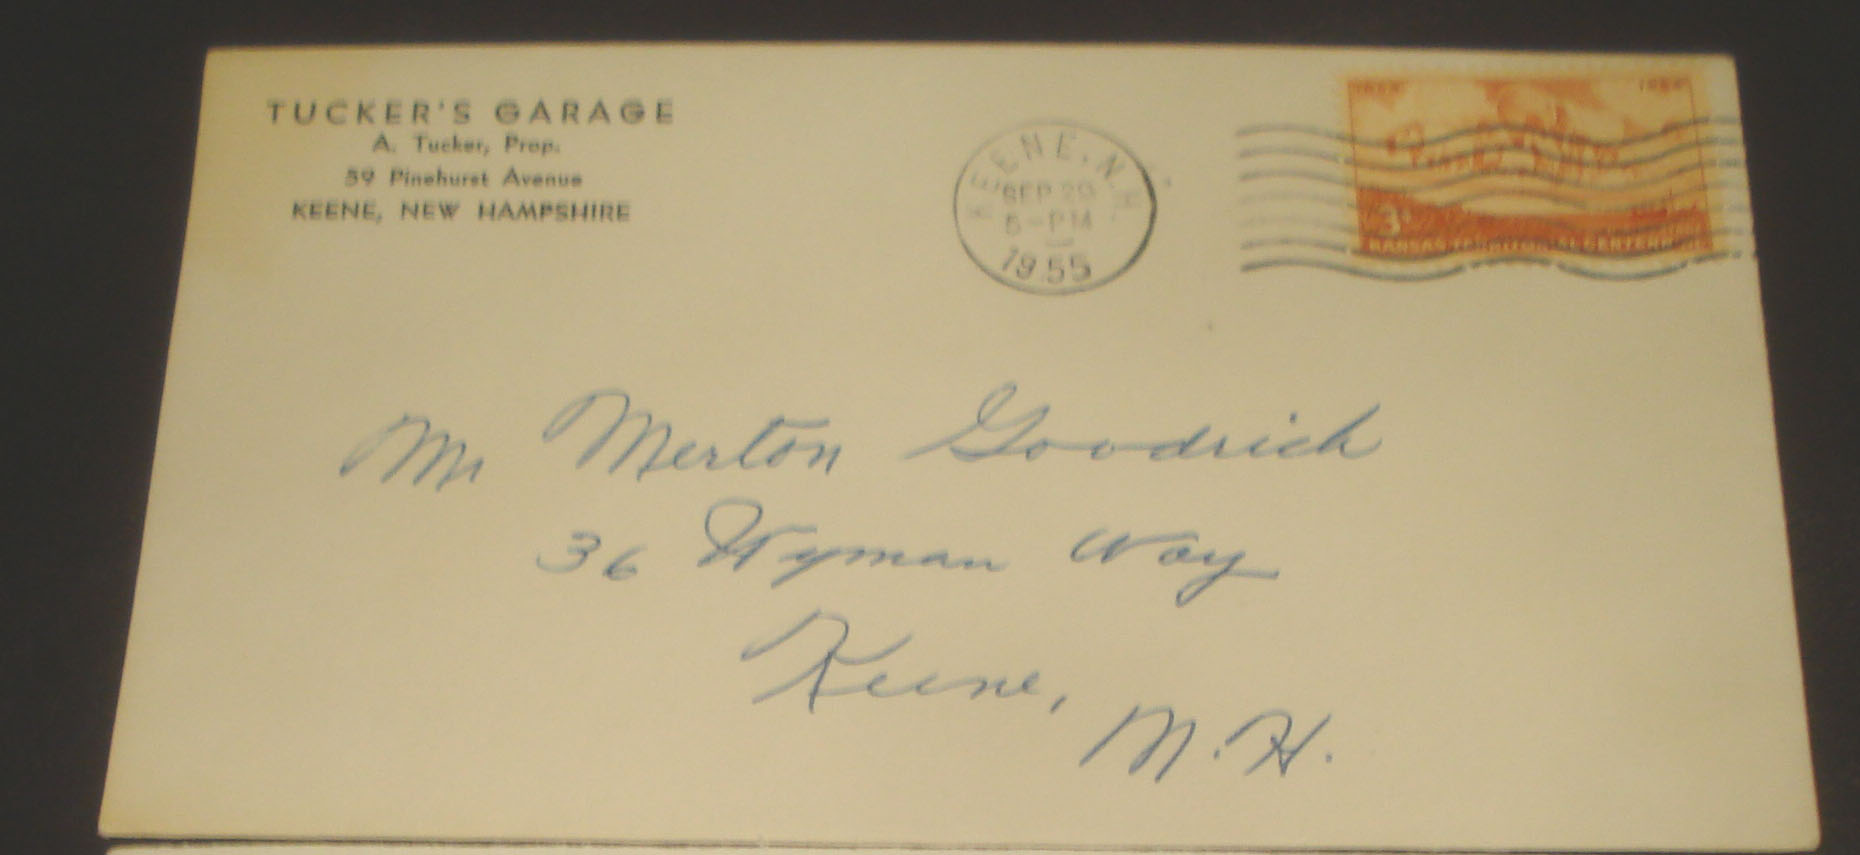 TUCKER'S GARAGE
A. Tucker, Prop.
59 Pinehurst Avenue
KEENE, NEW HAMPSHIRE
KEENE, N.H.
SEP 20
5-PM
1955
1854 1954
3¢
KANSAS TERRITORIAL CENTENNIAL
Mr Merton Goodrich
36 Wyman Way
Keene,
N.H.